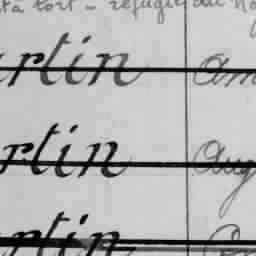 à tort - réfugié du No
rtin Am
rtin Aug
rtin